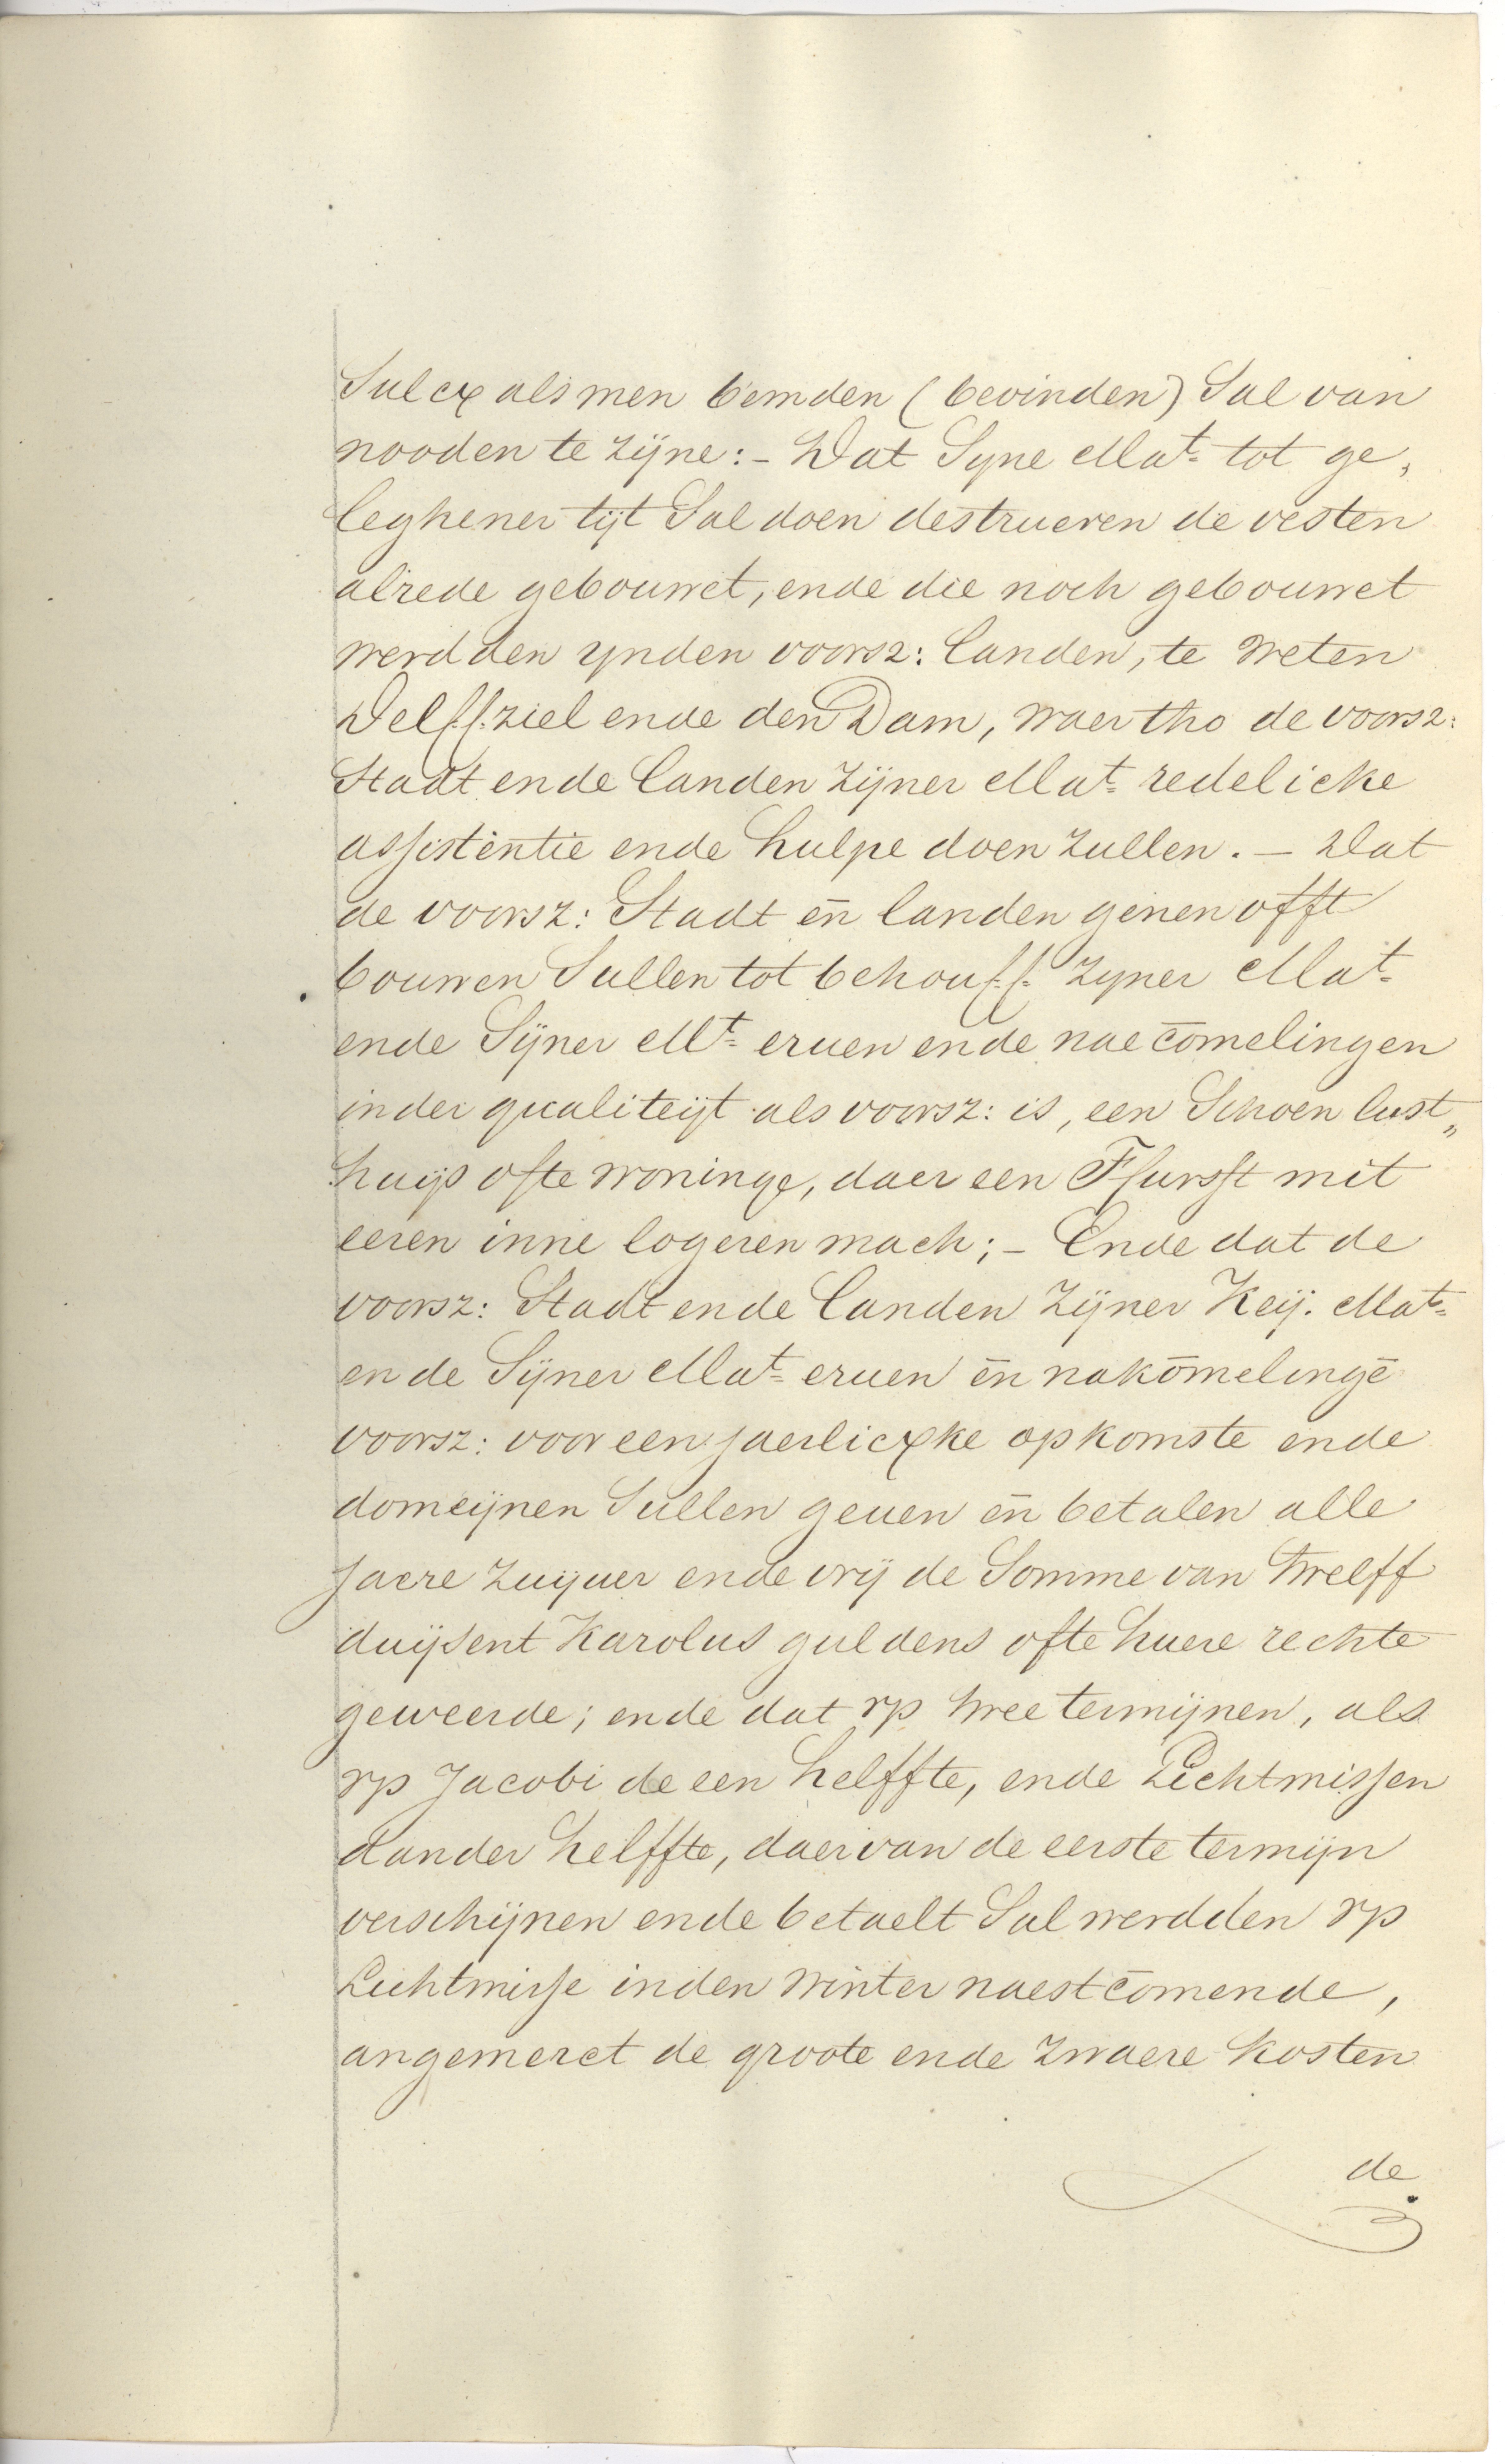 Sulcx als men bemden (bevinden) Sal van
nooden te zijne:- Dat Syne Mat= tot ge,
leghener tijt Sal doen destrueren de vesten
alrede gebouwet, ende die noch gebouwet
werdden ynden voorsz: landen, te weten
Delffziel ende den Dam, waer tho de voorsz:
Stadt ende landen zijner Mat= redelicke
assistentie ende hulpe doen zullen. — Dat
de voorsz: Stadt en̄ landen genen offt
bouwen Sullen tot behouff zyner Mat=
ende Sijner Mt= eruen ende naec̄omelingen
inder qualiteijt als voorsz: is, een Schoen lust„
huijs ofte woninge, daer een Ffursst mit
eeren inne logeren mach; - Ende dat de
voorsz: Stadt ende landen Zijner Keij. Mat=
ende Sijner Mat= eruen en̄ nakōmelingē
voorsz: voor een jaerlicxke opkomste ende
domeijnen Sullen geuen en̄ betalen alle
jaere zuyuer ende vrij de Somme van twelff
duijsent Karolus guldens ofte huere rechte
geweerde; ende dat op twee termijnen, als
op Jacobi de een helffte, ende Lichtmissen
dander helffte, daervan de eerste termijn
verschijnen ende betaelt Sal werdden op
Lichtmisse inden winter naestc̄omende,
angemerct de groote ende zwaere kosten
de